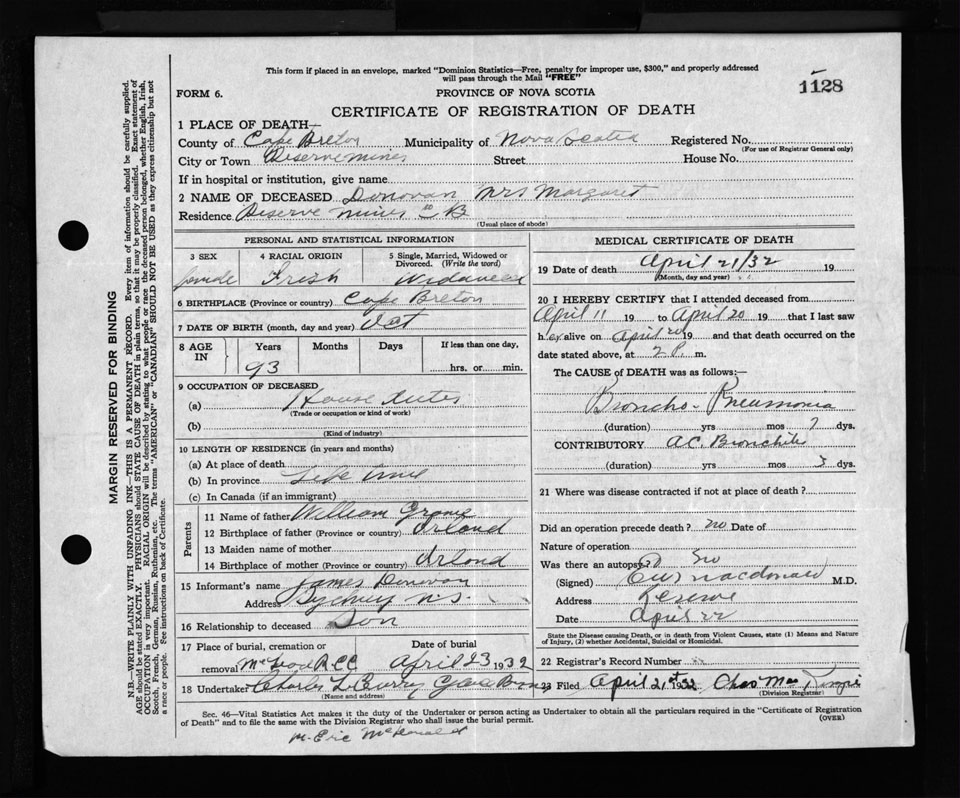 This form if placed in an envelope, marked "Dominion Statistics—Free, penalty for improper use, $300," and properly addressed
will pass through the Mail "FREE"
1128
FORM 6.
PROVINCE OF NOVA SCOTIA
CERTIFICATE OF REGISTRATION OF DEATH
1 PLACE OF DEATH—
County of Cape Breton Municipality of Nova Scotia Registered No.
(For use of Registrar General only)
City or Town Reserve mines Street House No.
If in hospital or institution, give name
2 NAME OF DECEASED Donovan Mrs Margaret
Residence Reserve mines CB
(Usual place of abode)
PERSONAL AND STATISTICAL INFORMATION
3 SEX 4 RACIAL ORIGIN 5 Single, Married, Widowed or
Divorced. (Write the word)
female Irish
6 BIRTHPLACE (Province or country) Cape Breton
7 DATE OF BIRTH (month, day and year)
8 AGE
IN
Years Months Days If less than one day,
93 hrs. or min.
9 OCCUPATION OF DECEASED
(a) House
(Trade or occupation or kind of work)
(b)
(Kind of industry)
10 LENGTH OF RESIDENCE (in years and months)
(a) At place of death
(b) In province Life time
(c) In Canada (if an immigrant)
Parents
11 Name of father William
12 Birthplace of father (Province or country) Arlond
13 Maiden name of mother
14 Birthplace of mother (Province or country) Arlond
15 Informant's name James Donovan
Address Sydney N.S.
16 Relationship to deceased Son
17 Place of burial, cremation or Date of burial
removal April 23 1932
18 Undertaker Charles
(Name and address)
MEDICAL CERTIFICATE OF DEATH
19 Date of death April 21/32 19
(Month, day and year)
20 I HEREBY CERTIFY that I attended deceased from
April 11 19 to April 20 19 that I last saw
her alive on April 20 19 and that death occurred on the
date stated above, at 2 P. m.
The CAUSE of DEATH was as follows:—
Broncho-Pneumonia
(duration) yrs mos 7 dys.
CONTRIBUTORY Ac. Bronchitis
(duration) yrs mos 3 dys.
21 Where was disease contracted if not at place of death?
Did an operation precede death? no Date of
Nature of operation
Was there an autopsy? no
(Signed) macdonald M.D.
Address Reserve
Date April 22
State the Disease causing Death, or in death from Violent Causes, state (1) Means and Nature
of Injury, (2) whether Accidental, Suicidal or Homicidal.
22 Registrar's Record Number
23 Filed April 21st 1932 Chas
(Division Registrar)
Sec. 46—Vital Statistics Act makes it the duty of the Undertaker or person acting as Undertaker to obtain all the particulars required in the "Certificate of Registration
of Death" and to file the same with the Division Registrar who shall issue the burial permit.
(OVER)
MARGIN RESERVED FOR BINDING
N.B.—WRITE PLAINLY WITH UNFADING INK—THIS IS A PERMANENT RECORD. Every item of information should be carefully supplied.
AGE should be stated EXACTLY. PHYSICIANS should STATE CAUSE OF DEATH in plain terms, so that it may be properly classified. Exact statement of
OCCUPATION is very important. RACIAL ORIGIN will be described by stating to what people or race the deceased person belonged, whether English, Irish,
Scotch, French, German, Russian, Ruthenian, etc. The terms "AMERICAN" or "CANADIAN" SHOULD NOT BE USED as they express citizenship but not
a race or people. See instructions on back of Certificate.